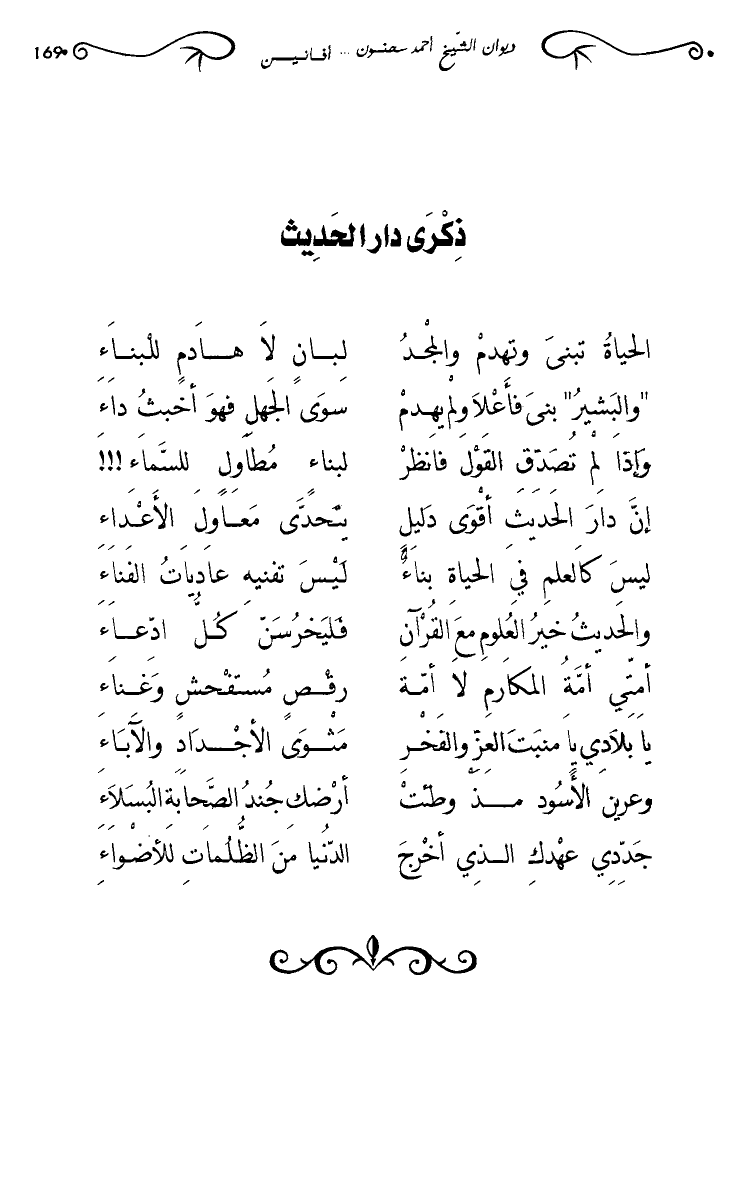 ديوان الشّيخ أحمد سحنون ... أفانيـــن 169
ذِكْرَى دار الحَدِيث
الحياةُ تبنىَ وتهدمْ والمْجـدُ لبـــانٍ لاَ هـــادَمٍ للبْنـاءِ
"والبَشيرُ" بنىَ فأَعْلاَ ولمْ يهدمْ سوَى الجَهلِ فهوَ أخبثُ داءِ
وَإذَا لمْ تُصَدّقِ القوْلَ فانظرْ لبناء مُطاَولٍ للسَّماء !!!
إنَّ دارَ الحَديثِ أقْوَى دَليلٍ يتَحدَّى مَعــاولَ الأَعْـداءِ
ليسَ كالعلمِ فيِ الحياةِ بناءٌ لَيْـسَ تفنيهِ عادِياتُ الفَناءِ
والحَديثُ خيرُ العُلومِ معَ القُرْآنِ فَليَخرُسَنّ كُـلُّ ادّعـاءِ
أمتِّي أمَّةُ المكارمِ لاَ أمّـةَ رقْــصٍ مُستفْحشٍ وَغنـاءِ
يا بلاَدِي يا منبَتَ العزِّ والفَخْـرِ مَثْــوَى الأجْـدَادِ والآبَـاءِ
وَعرينَ الأُسُود مـــذْ وطئتْ أرْضكِ جُندُ الصَّحابَةِ البُسَلاَءِ
جَدّدِي عهْدكِ الـذي أخْرجَ الدّنْيا منَ الظُّلُماتِ للأضْواءِ